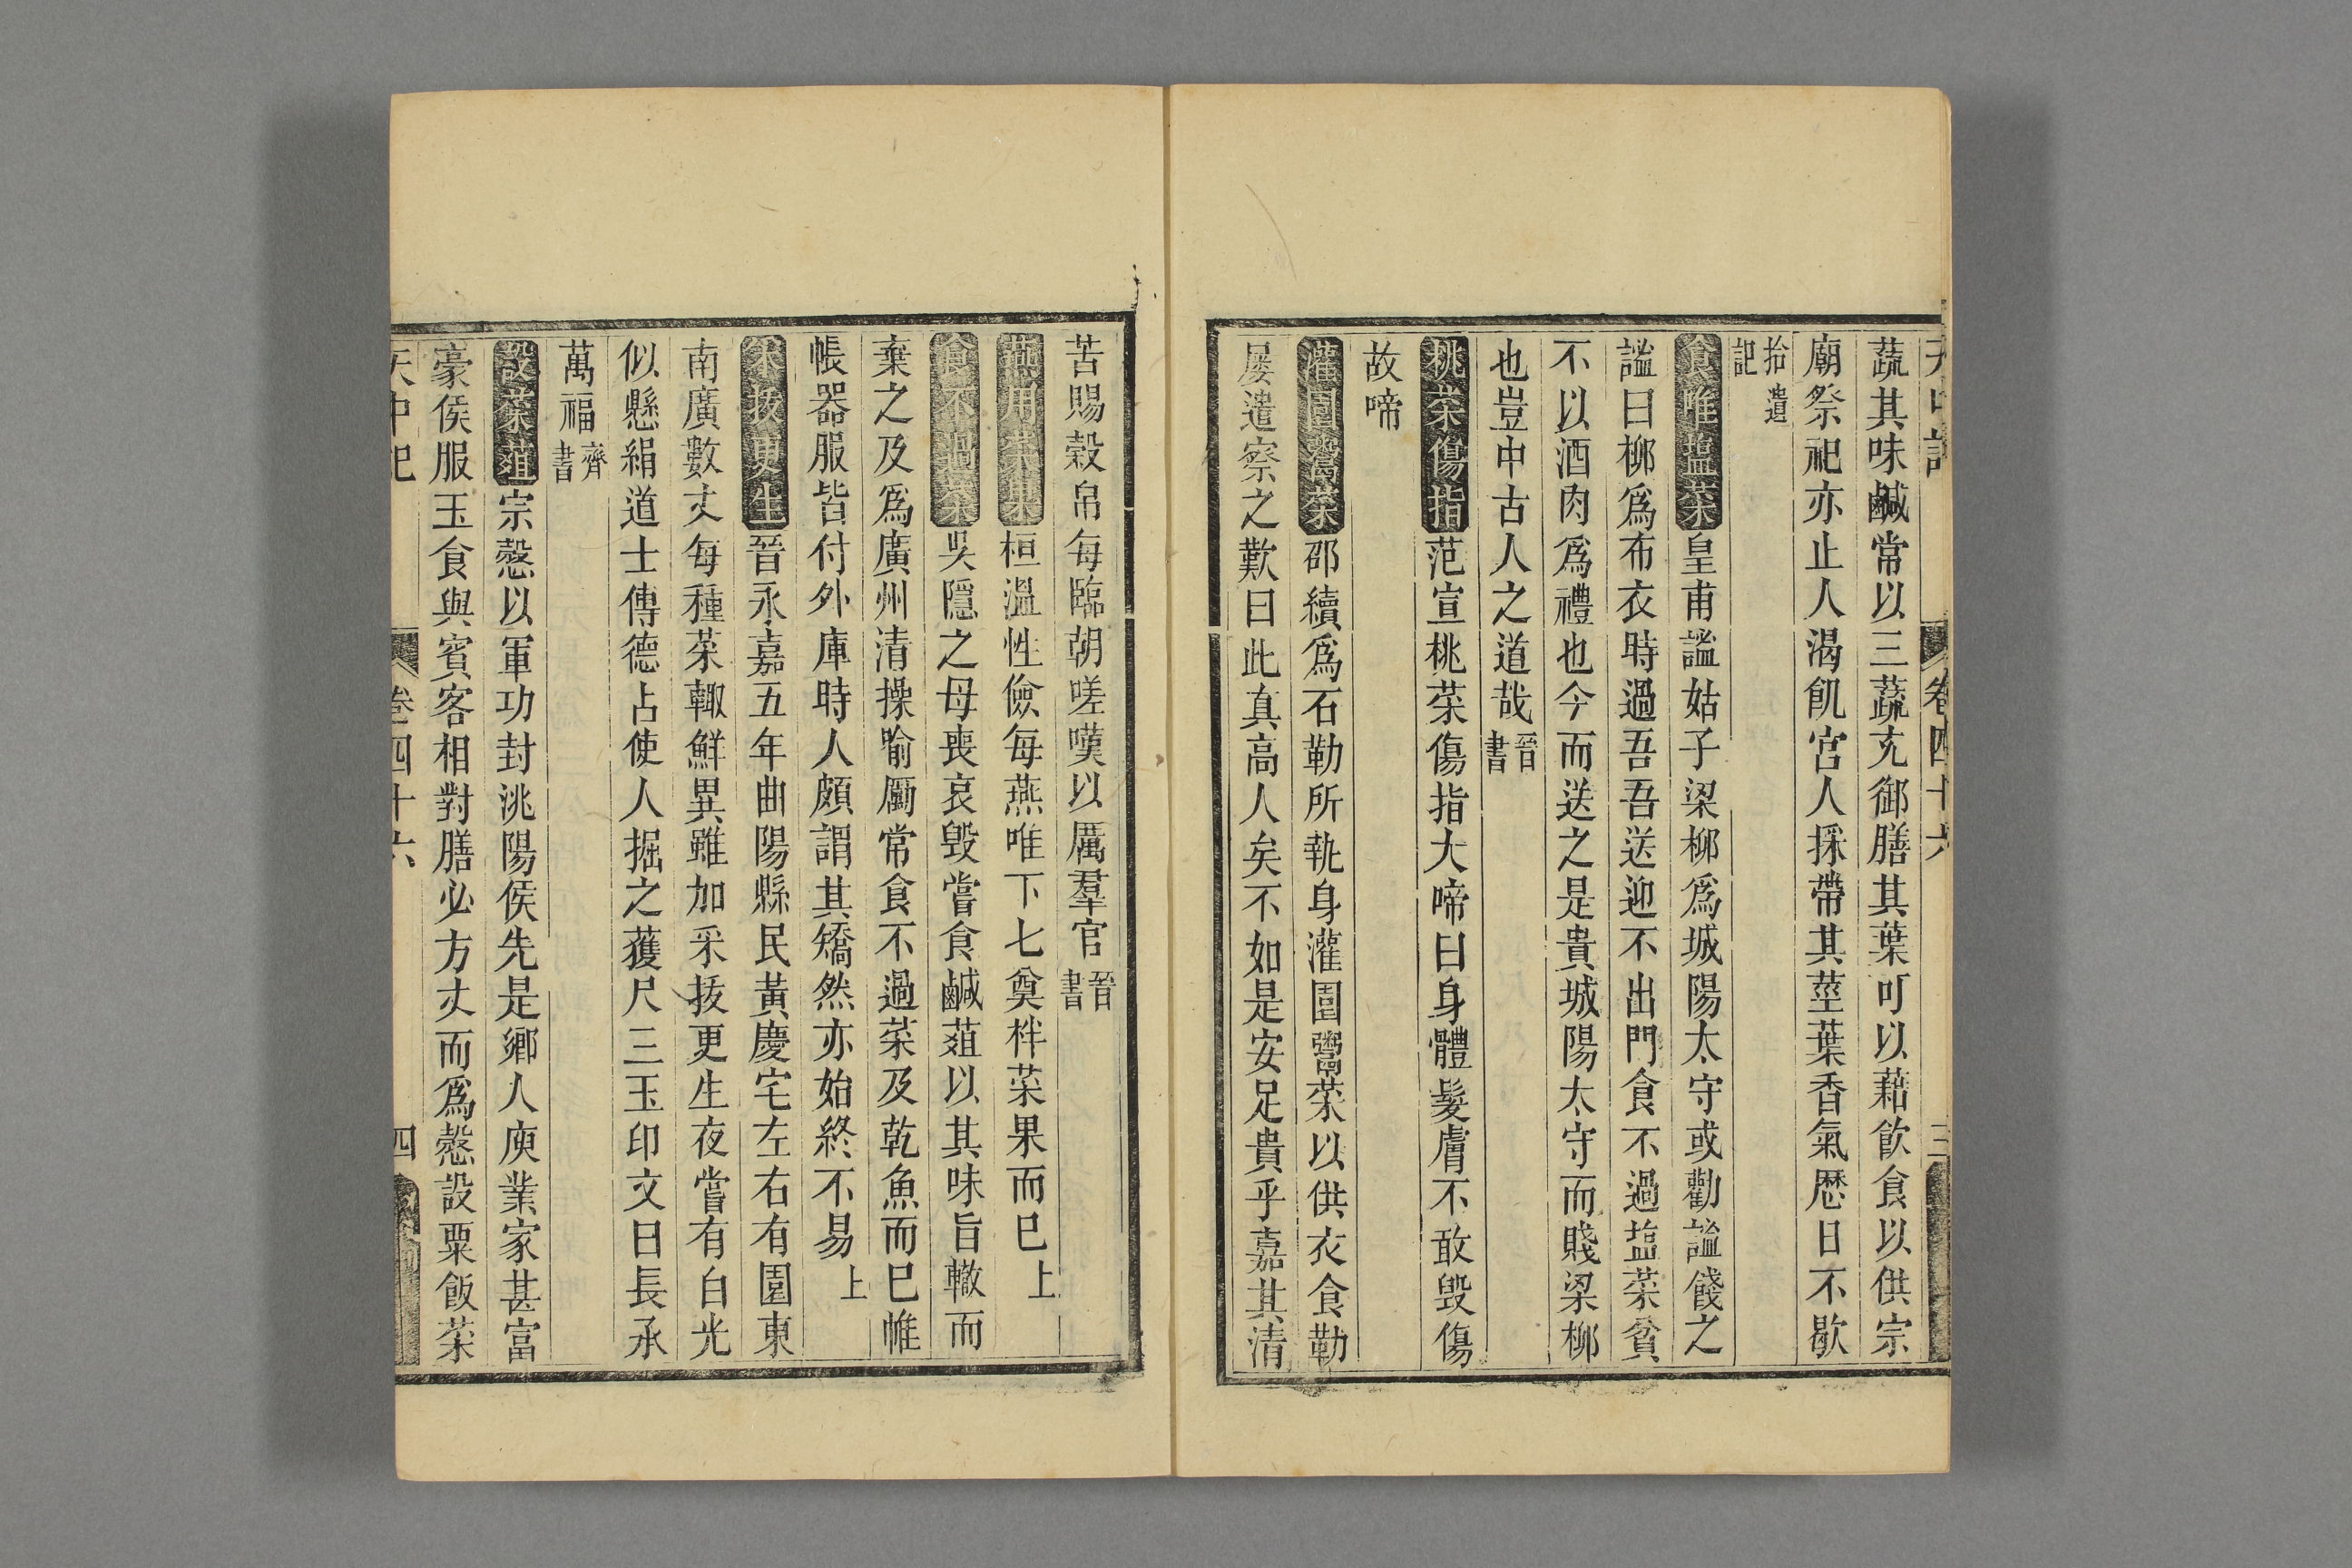 天中記 卷四十六 三
蔬其味鹹常以三蔬充御膳其葉可以藉飲食以供宗
廟祭祀亦止人渴飢宫人採帶其莖葉香氣歴日不歇
拾遺
記
食唯塩菜皇甫謐姑子梁柳爲城陽太守或勸謐餞之
謐曰柳爲布衣時過吾吾送迎不出門食不過塩菜貧
不以酒肉爲禮也今而送之是貴城陽太守而賤梁柳
也豈中古人之道哉晉書
挑菜傷指范宣桃菜傷指大啼曰身體髮膚不敢毁傷
故啼
灌園鬻菜邵續爲石勒所執身灌園鬻菜以供衣食勒
屡遣察之歎曰此真高人矣不如是安足貴乎嘉其清
苦賜穀帛每臨朝嗟嘆以厲羣官晉書
燕用菜果桓溫性儉每燕唯下七奠柈菜果而巳上
食不過菜吳隱之母喪哀毁嘗食鹹葅以其味旨轍而
棄之及爲廣州清操喻厲常食不過菜及乾魚而巳帷
帳器服皆付外庫時人頗謂其矯然亦始終不易上
采拔更生晉永嘉五年曲陽縣民黃慶宅左右有園東
南廣數丈每種菜輙鮮異雖加采拔更生夜嘗有白光
似懸絹道士傅德占使人掘之獲尺三玉印文曰長承
萬福齊書
設菜葅宗慤以軍功封洮陽侯先是鄉人庾業家甚富
豪侯服玉食與賓客相對膳必方丈而爲慤設粟飯菜
天中記 卷四十六 四